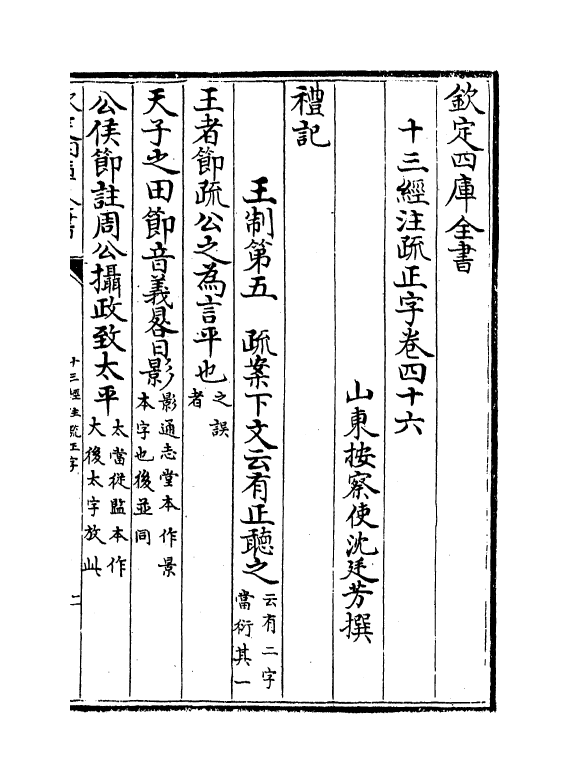 欽定四庫全書
十三經注疏正字卷四十六
山東按察使沈廷芳撰
禮記
王制第五 疏案下文云有正聽之云有二字當衍其一
王者節疏公之為言平也之誤者
天子之田節音義晷日影影通志堂本作景本字也後並同
公侯節註周公攝政致太平太當從監本作大後太字放此
欽定四庫全書
十三經注疏正字